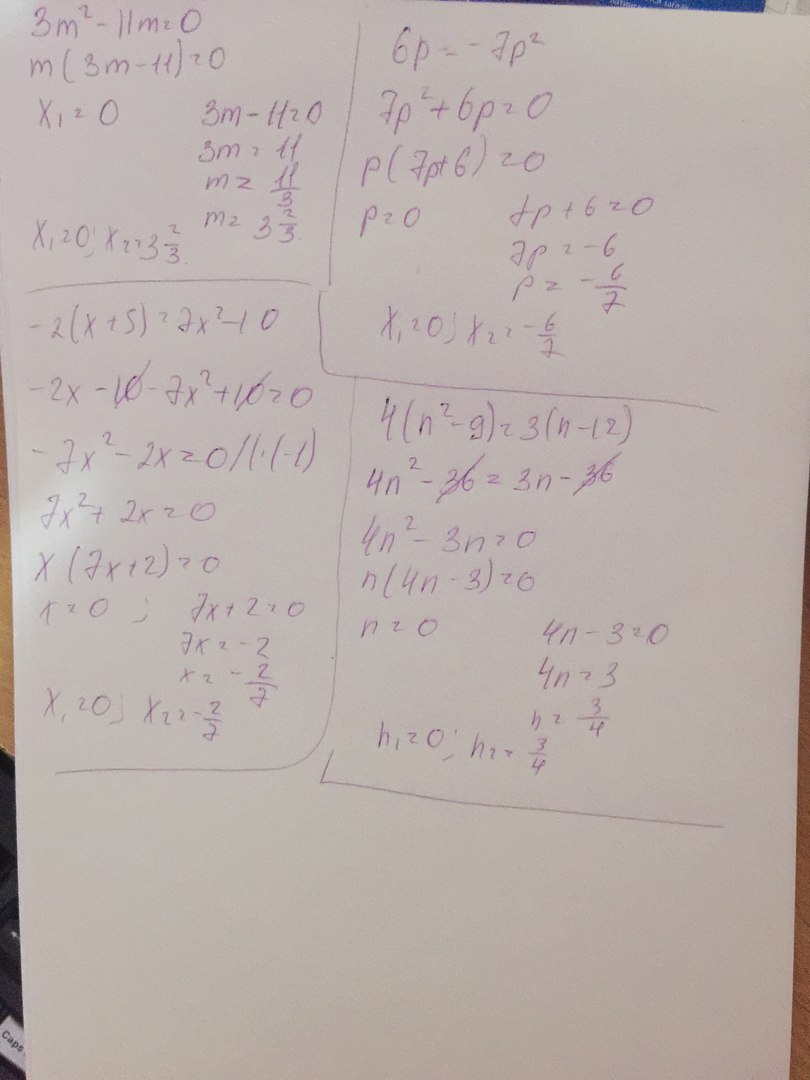 3m² - 11m = 0
m(3m - 11) = 0
x₁ = 0 3m - 11 = 0
3m = 11
m = 11/3
m = 3 2/3
x₁ = 0; x₂ = 3 2/3.
6p = -7p²
7p² + 6p = 0
p(7p + 6) = 0
p = 0 7p + 6 = 0
7p = -6
p = -6/7
x₁ = 0; x₂ = -6/7
-2(x + 5) = 7x² - 10
-2x - 10 - 7x² + 10 = 0
-7x² - 2x = 0 //·(-1)
7x² + 2x = 0
x(7x + 2) = 0
x = 0 ; 7x + 2 = 0
7x = -2
x = -2/7
x₁ = 0; x₂ = -2/7
4(n² - 9) = 3(n - 12)
4n² - 36 = 3n - 36
4n² - 3n = 0
n(4n - 3) = 0
n = 0 4n - 3 = 0
4n = 3
n = 3/4
n₁ = 0; n₂ = 3/4
Caps